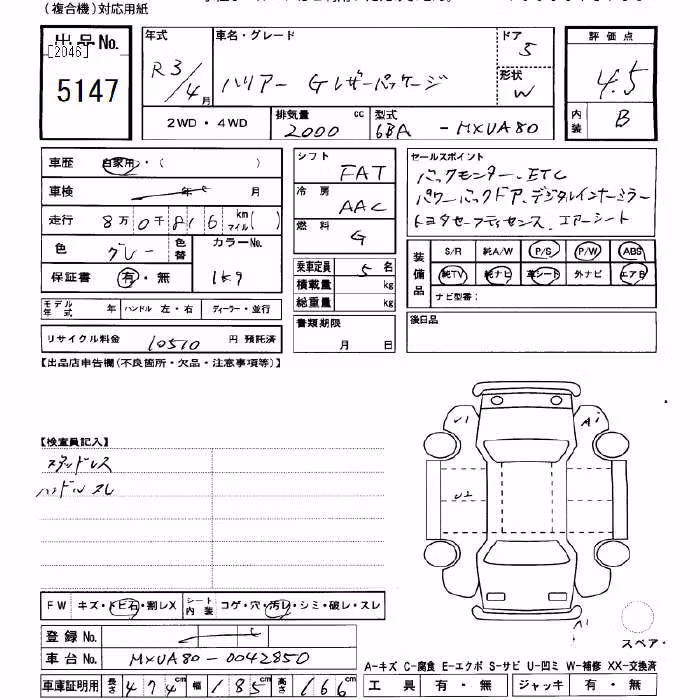 (複合機)対応用紙
出品No.
[2046]
5147
年式 R3/4月
車名・グレード ハリアー Gレザーパッケージ
ドア 5
形状 W
評価点 4.5
内装 B
2WD・4WD
排気量 2000 cc
型式 6BA - MXUA80
車歴 自家用・( )
車検 年 月
走行 8万0千816 km マイル( )
色 グレー 色替 カラーNo. 1k9
保証書 有・無
モデル年式 年 ハンドル 左・右 ディーラー・並行
リサイクル料金 10510 円 預託済
シフト FAT
冷房 AAC
燃料 G
乗車定員 5 名
積載量 kg
総重量 kg
書類期限
月 日
セールスポイント
バックモニター、ETC
パワーバックドア、デジタルインナーミラー
トヨタセーフティセンス、エアーシート
装備品 S/R 純A/W P/S P/W ABS
純TV 純ナビ 革シート 外ナビ エアB
ナビ型番:
後日品
【出品店申告欄(不良箇所・欠品・注意事項等)】
【検査員記入】
スタッドレス
ハンドルスレ
U1 A1
U2
A1
スペア
FW キズ・トビ石・割レX シート内装 コゲ・穴・汚レ・シミ・破レ・スレ
登録No.
車台No. MXUA80-0042850
車庫証明用 長さ 474cm 幅 185cm 高さ 166cm
A-キズ C-腐食 E-エクボ S-サビ U-凹ミ W-補修 XX-交換済
工具 有・無 ジャッキ 有・無